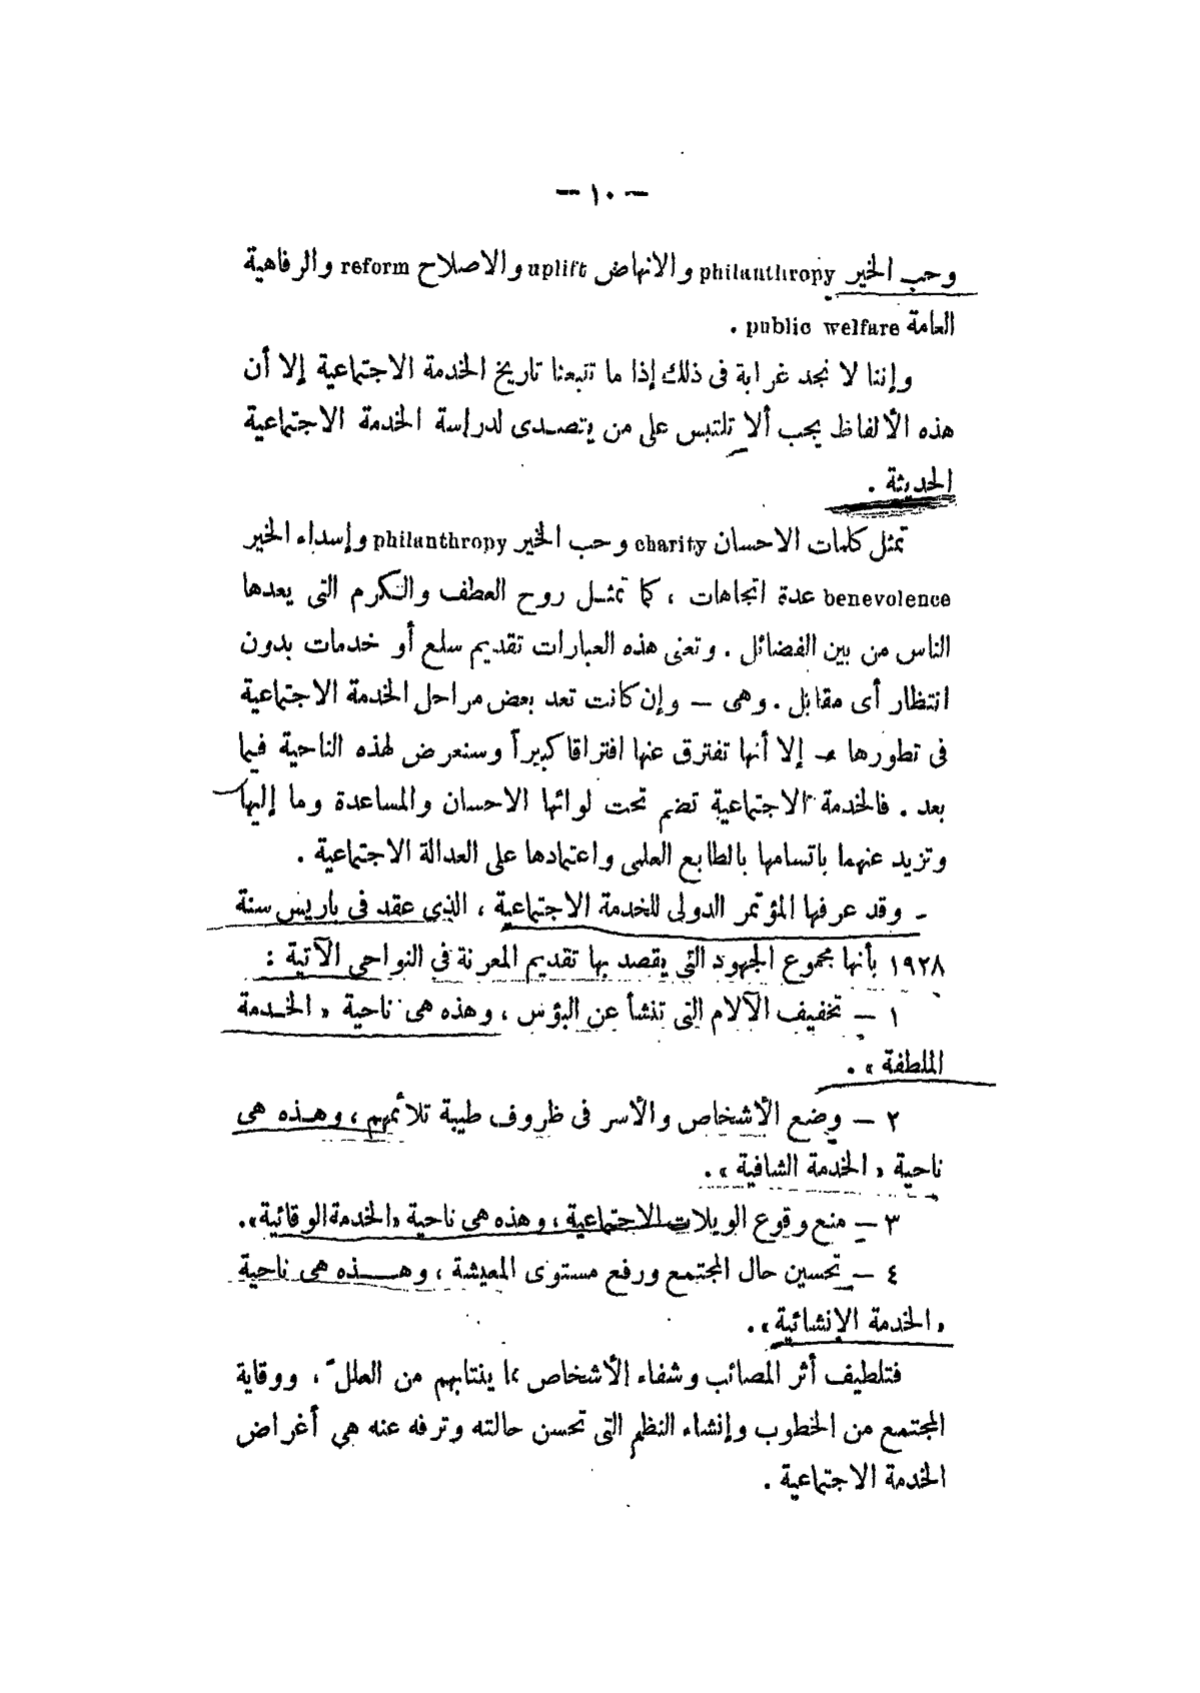 — ١٠ —
وحب الخير philanthropy والانهاض uplift والاصلاح reform والرفاهية
العامة public welfare .
وإننا لا نجد غرابة فى ذلك إذا ما تتبعنا تاريخ الخدمة الاجتماعية إلا أن
هذه الألفاظ يجب ألا تلتبس على من يتصدى لدراسة الخدمة الاجتماعية
الحديثة .
تمثل كلمات الاحسان charity وحب الخير philanthropy وإسداء الخير
benevolence عدة اتجاهات ، كما تمثل روح العطف والتكرم التى يعدها
الناس من بين الفضائل . وتعنى هذه العبارات تقديم سلع أو خدمات بدون
انتظار أى مقابل . وهى — وإن كانت تعد بعض مراحل الخدمة الاجتماعية
فى تطورها — إلا أنها تفترق عنها افتراقا كبيراً وسنعرض لهذه الناحية فيما
بعد . فالخدمة الاجتماعية تضم تحت لوائها الاحسان والمساعدة وما إليها
وتزيد عنهما باتسامها بالطابع العلمى واعتمادها على العدالة الاجتماعية .
- وقد عرفها المؤتمر الدولى للخدمة الاجتماعية ، الذى عقد فى باريس سنة
١٩٢٨ بأنها مجموع الجهود التى يقصد بها تقديم المعونة فى النواحى الآتية :
١ — تخفيف الآلام التى تنشأ عن البؤس ، وهذه هى ناحية « الخدمة
الملطفة » .
٢ — وضع الأشخاص والأسر فى ظروف طيبة تلائمهم ، وهذه هى
ناحية « الخدمة الشافية » .
٣ — منع وقوع الويلات الاجتماعية ، وهذه هى ناحية «الخدمة الوقائية».
٤ — تحسين حال المجتمع ورفع مستوى المعيشة ، وهذه هى ناحية
«الخدمة الإنشائية» .
فتلطيف أثر المصائب وشفاء الأشخاص مما ينتابهم من العلل ، ووقاية
المجتمع من الخطوب وإنشاء النظم التى تحسن حالته وترفه عنه هى أغراض
الخدمة الاجتماعية .